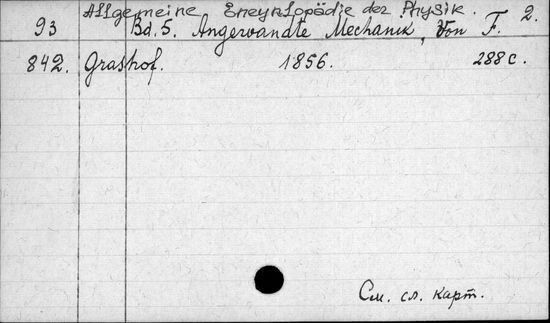 Allgemeine Encyklopädie der Physik. 2.
93 Bd. 5. Angewandte Mechanik, Von F.
842. Grashof. 1856. 288 c.
См. сл. карт.